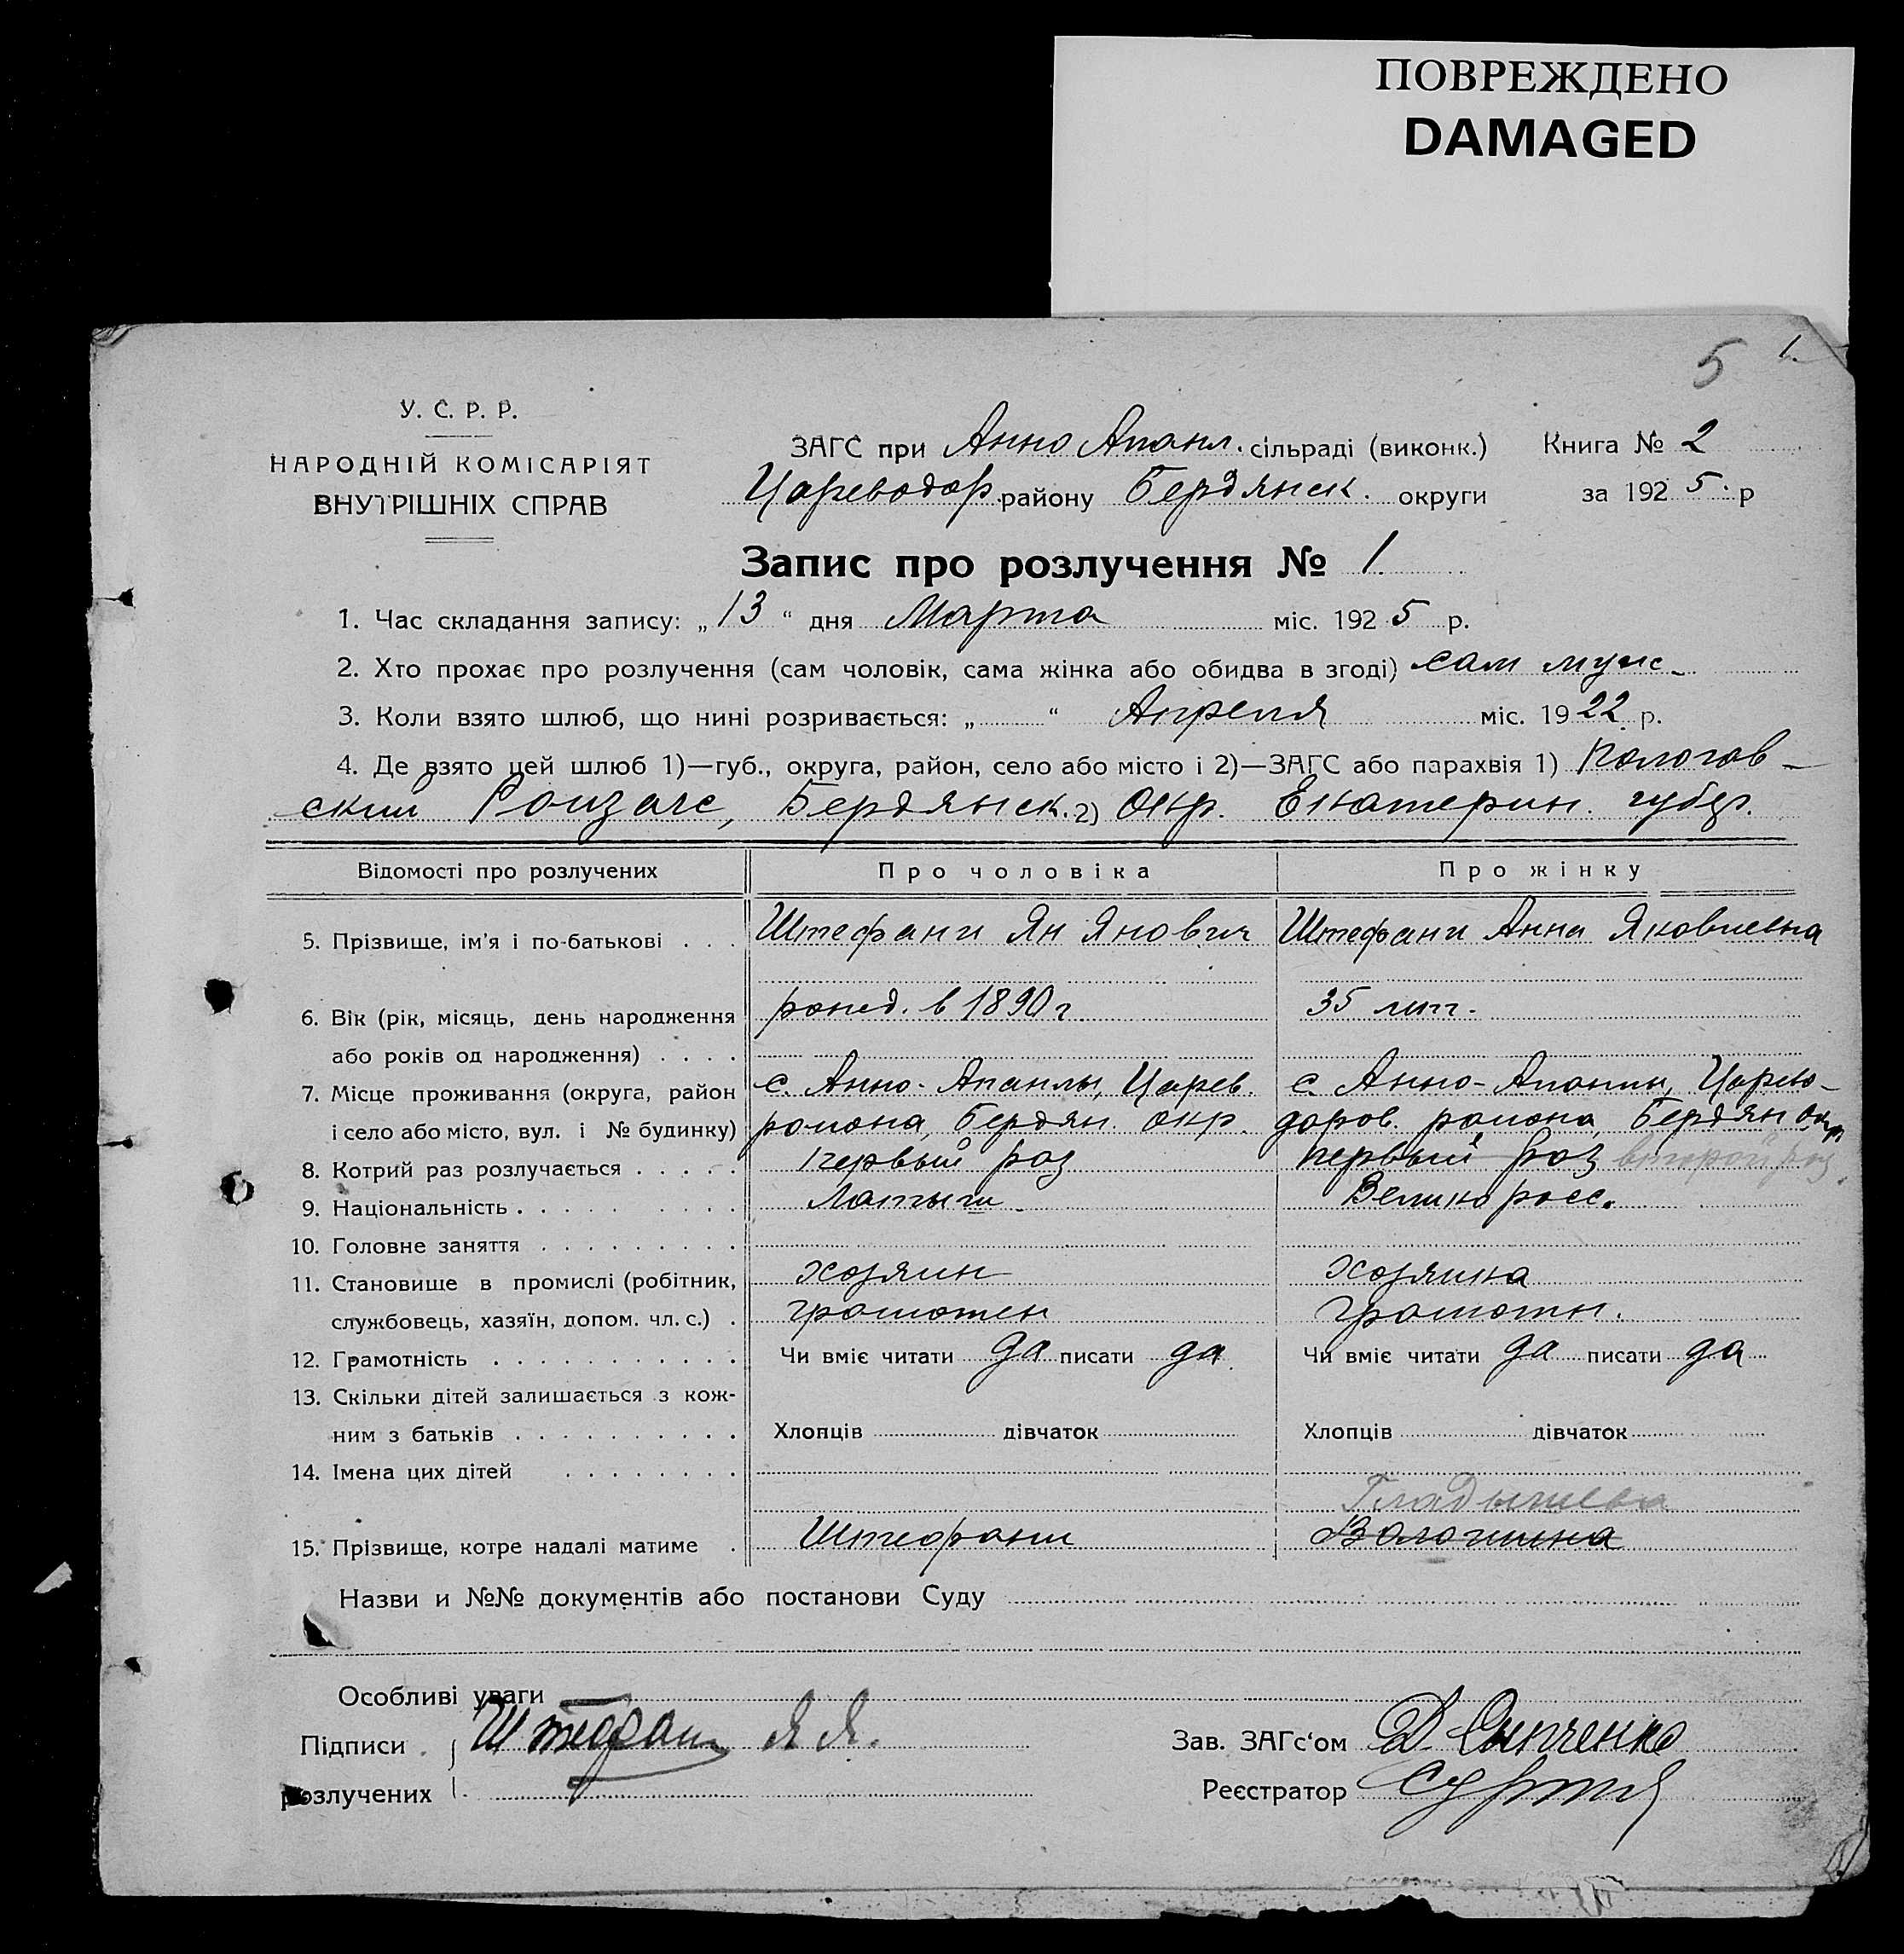 ПОВРЕЖДЕНО
DAMAGED
5 1.
У. С. Р. Р.
НАРОДНІЙ КОМІСАРІЯТ
ВНУТРІШНІХ СПРАВ
ЗАГС при Анно Апанл. сільраді (виконк.) Книга № 2
Цареводар. району Бердянск. округи за 1925 р
Запис про розлучення № 1.
1. Час складання запису: „13“ дня Марта міс. 1925 р.
2. Хто прохає про розлучення (сам чоловік, сама жінка або обидва в згоді) сам муж
3. Коли взято шлюб, що нині розривається: „ “ Апреля міс. 1922 р.
4. Де взято цей шлюб 1)—губ., округа, район, село або місто і 2)—ЗАГС або парахвія 1) Пологов-
ский Ронзагс, Бердянск. 2) Окр. Екатерин. губ.
Відомості про розлучених Про чоловіка Про жінку
5. Прізвище, ім'я і по-батькові . . . Штефани Ян Янович Штефани Анна Яковлевна
6. Вік (рік, місяць, день народження рожд. в 1890 г. 35 лет.
або років од народження) . . . .
7. Місце проживання (округа, район с. Анно-Апанлы, Царев. с. Анно-Апанлы, Царево-
і село або місто, вул. і № будинку) района, Бердян. окр. даров. района, Бердян окр
8. Котрий раз розлучається . . . . . первый раз первый раз второй раз
9. Національність . . . . . . . . . Латыш Великоросс.
10. Головне заняття . . . . . . . . .
11. Становище в промислі (робітник, хозяин хозяйка
службовець, хазяїн, допом. чл. с.) . грамотен грамотн.
12. Грамотність . . . . . . . . . . . Чи вміє читати да писати да Чи вміє читати да писати да
13. Скільки дітей залишається з кож-
ним з батьків . . . . . . . . . . Хлопців дівчаток Хлопців дівчаток
14. Імена цих дітей . . . . . . . .
Гладышева
15. Прізвище, котре надалі матиме . Штефани Волошина
Назви и №№ документів або постанови Суду
Особливі уваги
Підписи Штефани Я Я. Зав. ЗАГс‘ом
розлучених Реєстратор